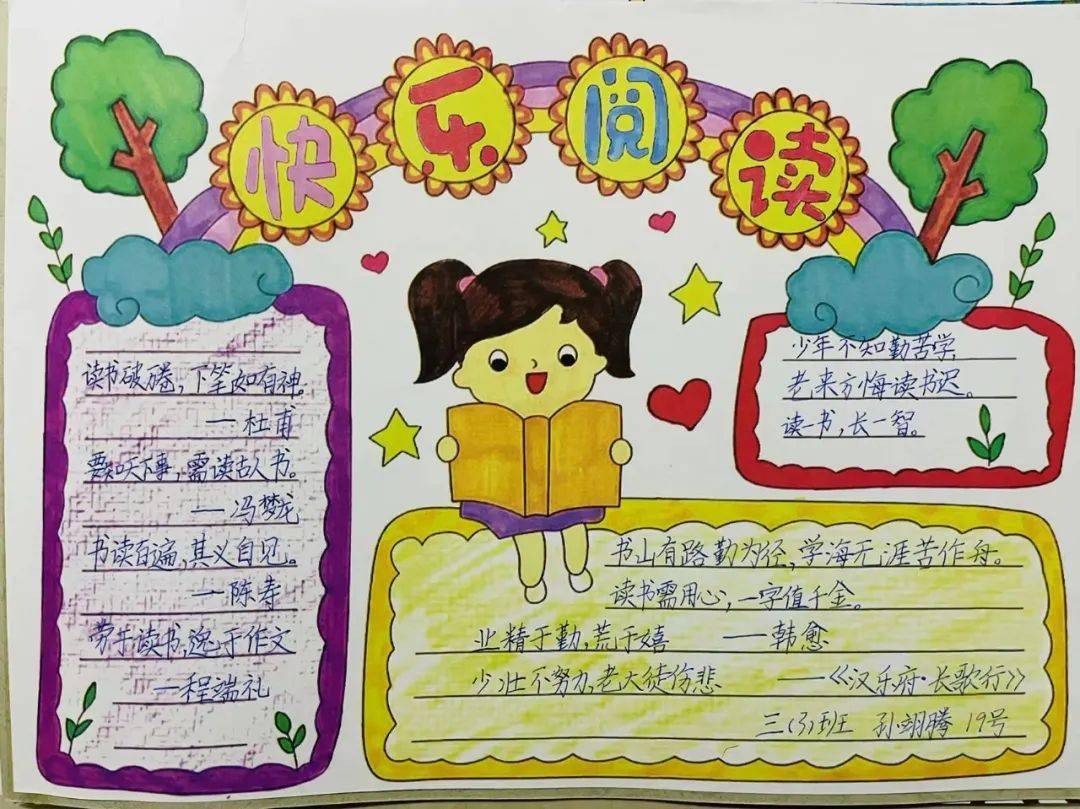 快乐阅读
读书破万卷,下笔如有神。
—杜甫
要知天下事,需读古人书。
—冯梦龙
书读百遍,其义自见。
—陈寿
劳于读书,逸于作文
—程端礼
少年不知勤苦学
老来方悔读书迟。
读一书,长一智。
书山有路勤为径,学海无涯苦作舟。
读书需用心,一字值千金。
业精于勤,荒于嬉 —韩愈
少壮不努力,老大徒伤悲 —《汉乐府·长歌行》
三(3)班 孙翊腾 19号